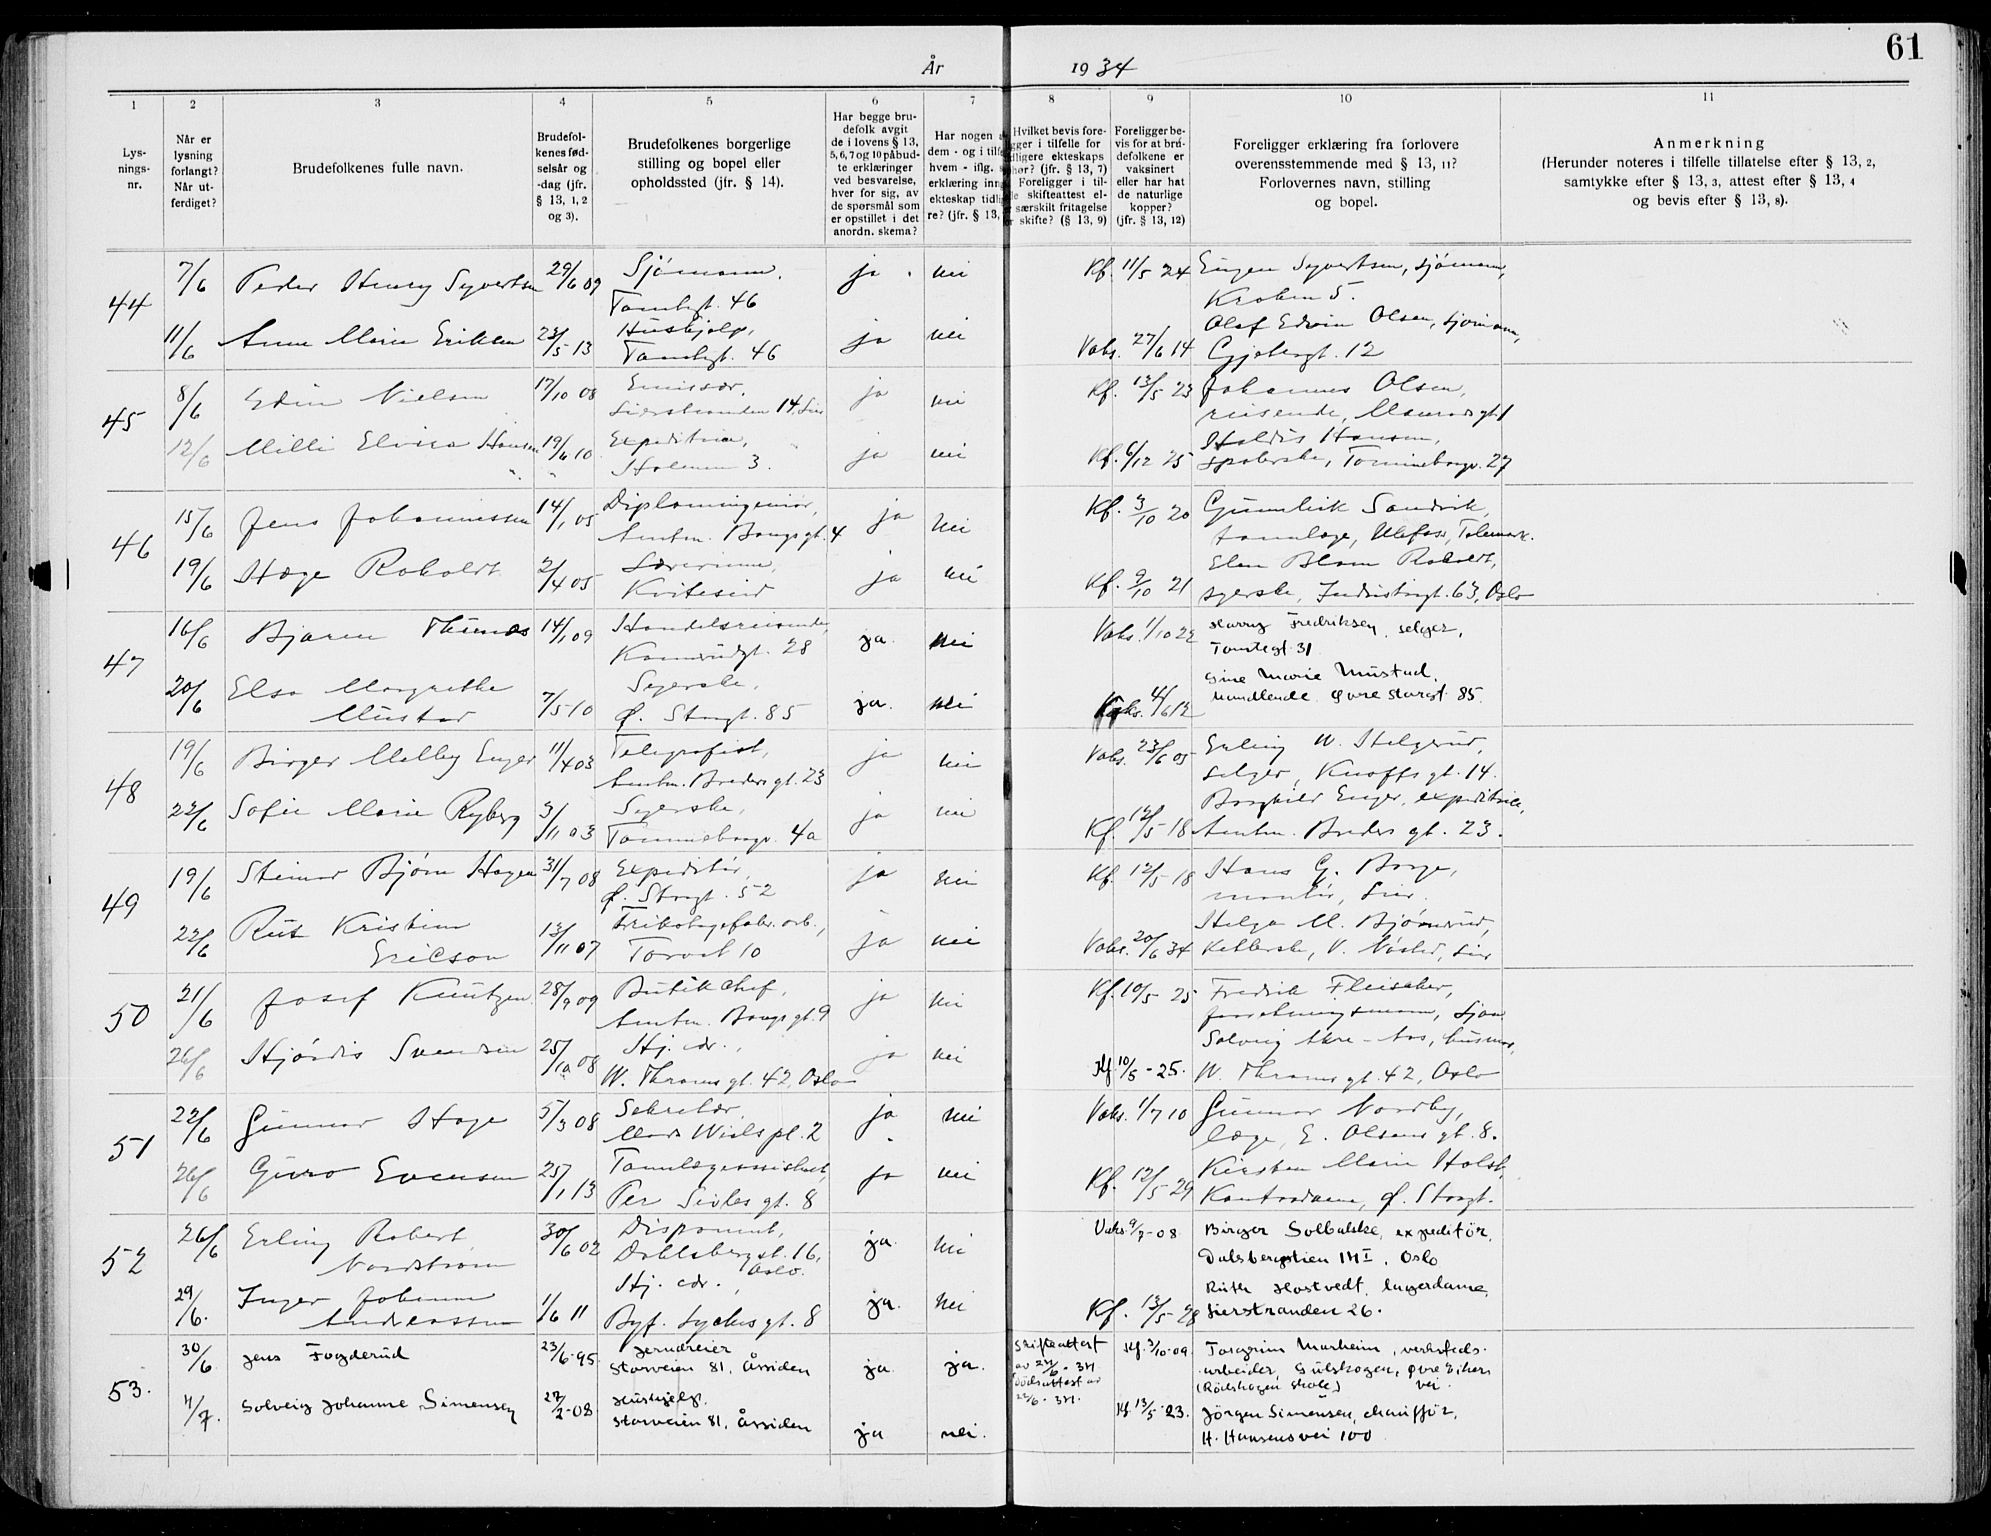 61
År 1934
1 2 3 4 5 6 7 8 9 10 11
Lysningsnr.
Når er lysning forlangt? Når utferdiget?
Brudefolkenes fulle navn.
Brudefolkenes fødselsår og -dag (jfr. § 13, 1, 2 og 3).
Brudefolkenes borgerlige stilling og bopel eller opholdssted (jfr. § 14).
Har begge brudefolk avgit de i lovens § 13, 5, 6, 7 og 10 påbudte erklæringer ved besvarelse, hver for sig, av de spørsmål som er opstillet i det anordn. skema?
Har nogen dem - og i tilf hvem - iflg. erklæring inn ekteskap tidl re? (jfr. § 13,
Hvilket bevis fore- gger i tilfelle for dligere ekteskaps hør? (jfr. § 13, 7) Foreligger i til- le skifteattest el- særskilt fritagelse r skifte? (§ 13, 9)
Foreligger bevis for at brudefolkene er vaksinert eller har hat de naturlige kopper? (jfr. § 13, 12)
Foreligger erklæring fra forlovere overensstemmende med § 13, 11? Forlovernes navn, stilling og bopel.
Anmerkning
(Herunder noteres i tilfelle tillatelse efter § 13, 2,
samtykke efter § 13, 3, attest efter § 13, 4
og bevis efter § 13, 8).
44 7/6 Peder Henry Syvertsen 29/6 09 Sjømann, ja nei Kf. 11/5 24 Eugen Syvertsen, sjømann,
Tomtegt. 46 Kroken 5.
11/6 Anne Marie Eriksen 23/5 13 Hushjelp, ja nei Vaks. 27/6 14 Olaf Edvin Olsen, sjømann,
Tomtegt. 46 Gjetergt. 12
45 8/6 Edin Nielsen 17/10 08 Emissær, ja nei Kf. 13/5 23 Johannes Olsen,
Lierstranden 14, Lier reisende,
12/6 Milli Elvira Hansen 19/6 10 Expeditrice, ja nei Kf. 6/12 25 Haldis Hansen,
Holmen 3. Tomineborgv. 27
46 15/6 Jens Johannessen 14/1 05 Diplomingeniør, ja nei Kf. 3/10 20 Gunleik Sandvik,
Amtm. Bangsgt. 4 tannlæge, Ulefoss, Telemark.
19/6 Hege Roholdt 2/4 05 Lærerinne, ja nei Kf. 9/10 21 Elen Blom Roholdt,
Kviteseid syerske, Industrigt. 63, Oslo
47 16/6 Bjarne Thunes 14/1 09 Handelsreisende, ja. nei Vaks. 1/10 22 Harry Fredriksen, selger,
28 Tomtegt. 31
20/6 Elsa Margrethe 7/5 10 Syerske, ja. nei Vaks. 4/6 12 Gine Marie Mustad.
Mustad Ø. Storgt. 85 Handlende. Øvre Storgt. 85.
48 19/6 Birger Melby Enger 11/4 03 Telegrafist, ja nei Vaks. 23/6 05 Erling W. Helgerud,
Amtm. Breders gt. 23 selger, Knoffs gt. 14.
22/6 Sofie Marie Ryberg 3/11 03 Syerske, ja nei Kf. 12/5 18 Borghild Enger, expeditrice,
Tomineborgv. 4a Amtm. Breders gt. 23.
49 19/6 Steinar Bjørn Hagen 31/7 08 Expeditør, ja nei Kf. 12/5 18 Hans G. Borge,
Ø. Storgt. 52 montør, Lier.
22/6 Rut Kristine 13/11 07 Trikotagefabr. arb., ja nei Vaks. 20/6 34 Helga M. Bjørnerud,
Ericson Torvet 10 V. Nøsted, Lier
50 21/6 Josef Knutzen 28/9 09 Butikchef, ja nei Kf. 10/5 25 Fredrik Fleischer,
Amtm. Bangs gt. 9 forretningsmann,
26/6 Hjørdis Svendsen 25/10 08 Hj. vær., ja nei Kf. 10/5 - 25. Solveig Akre-Aas, husmor,
W. Thranes gt. 42, Oslo W. Thranes gt. 42, Oslo
51 22/6 Gunnar Hage 5/3 08 Sekretær, ja nei Vaks. 1/7 10 Gunnar Nordby,
Mads Wiels pl. 2 læge, E. Olsens gt. 8.
26/6 Guro Evensen 25/1 13 Tannlægeassistent, ja nei Kf. 12/5 29 Kirsten Marie Holst,
Per Sivles gt. 8 Kontordame, Ø. Storgt.
52 26/6 Erling Robert 30/6 02 Disponent, ja. nei Vaks. 9/7 - 08 Birger Solbakke, expeditör,
Nordstrøm Dahlsbergst. 16, Oslo. Dalsbergstien 14 I. Oslo
29/6. Inger Johanne 1/6 11 Hj. vær., ja. nei Kf. 13/5 - 28 Ruth Hostvedt, lagerdame,
Andreassen Byf. Lyches gt. 8 Lierstranden 26.
53. 30/6 Jens Fogderud 23/6 - 95 Jerndreier ja. ja. Skifteattest Kf. 3/10 - 09 Torgrim Marheim, verksteds-
Storveien 81, Åssiden av 27/6 - 34. arbeider, Gulskogen, Øvre Eiker
Dødsattest av (Rödskogen skole) vei.
4/7. Solveig Johanne Simensen 27/2 - 08 Hushjelp. ja nei. 22/6 - 34. Kf. 13/5 - 23. Jörgen Simensen, chaufför,
Storveien 81, Åssiden H. Hansens vei 100